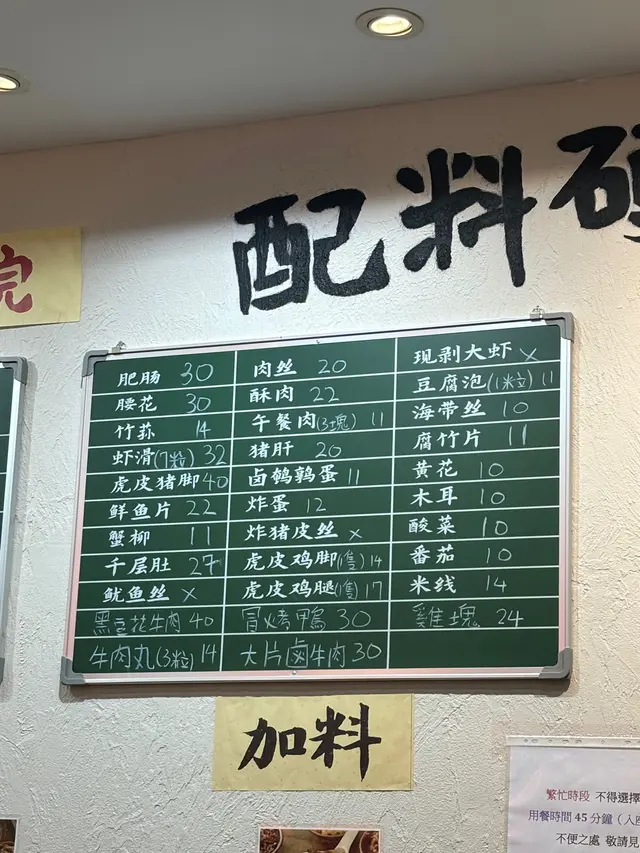 配料
完
肥肠 30
腰花 30
竹荪 14
虾滑(7粒) 32
虎皮猪脚 40
鲜鱼片 22
蟹柳 11
千层肚 27
鱿鱼丝 x
黑豆花牛肉 40
牛肉丸(3粒) 14
肉丝 20
酥肉 22
午餐肉(3塊) 11
猪肝 20
卤鹌鹑蛋 11
炸蛋 12
炸猪皮丝 x
虎皮鸡脚(1隻) 14
虎皮鸡腿(1隻) 17
冒火烤鴨 30
大片鹵牛肉 30
现剥大虾 x
豆腐泡(1粒) 11
海带丝 10
腐竹片 11
黄花 10
木耳 10
酸菜 10
番茄 10
米线 14
雞塊 24
加料
繁忙時段 不得選擇
用餐時間 45 分鐘（入
不便之處 敬請見